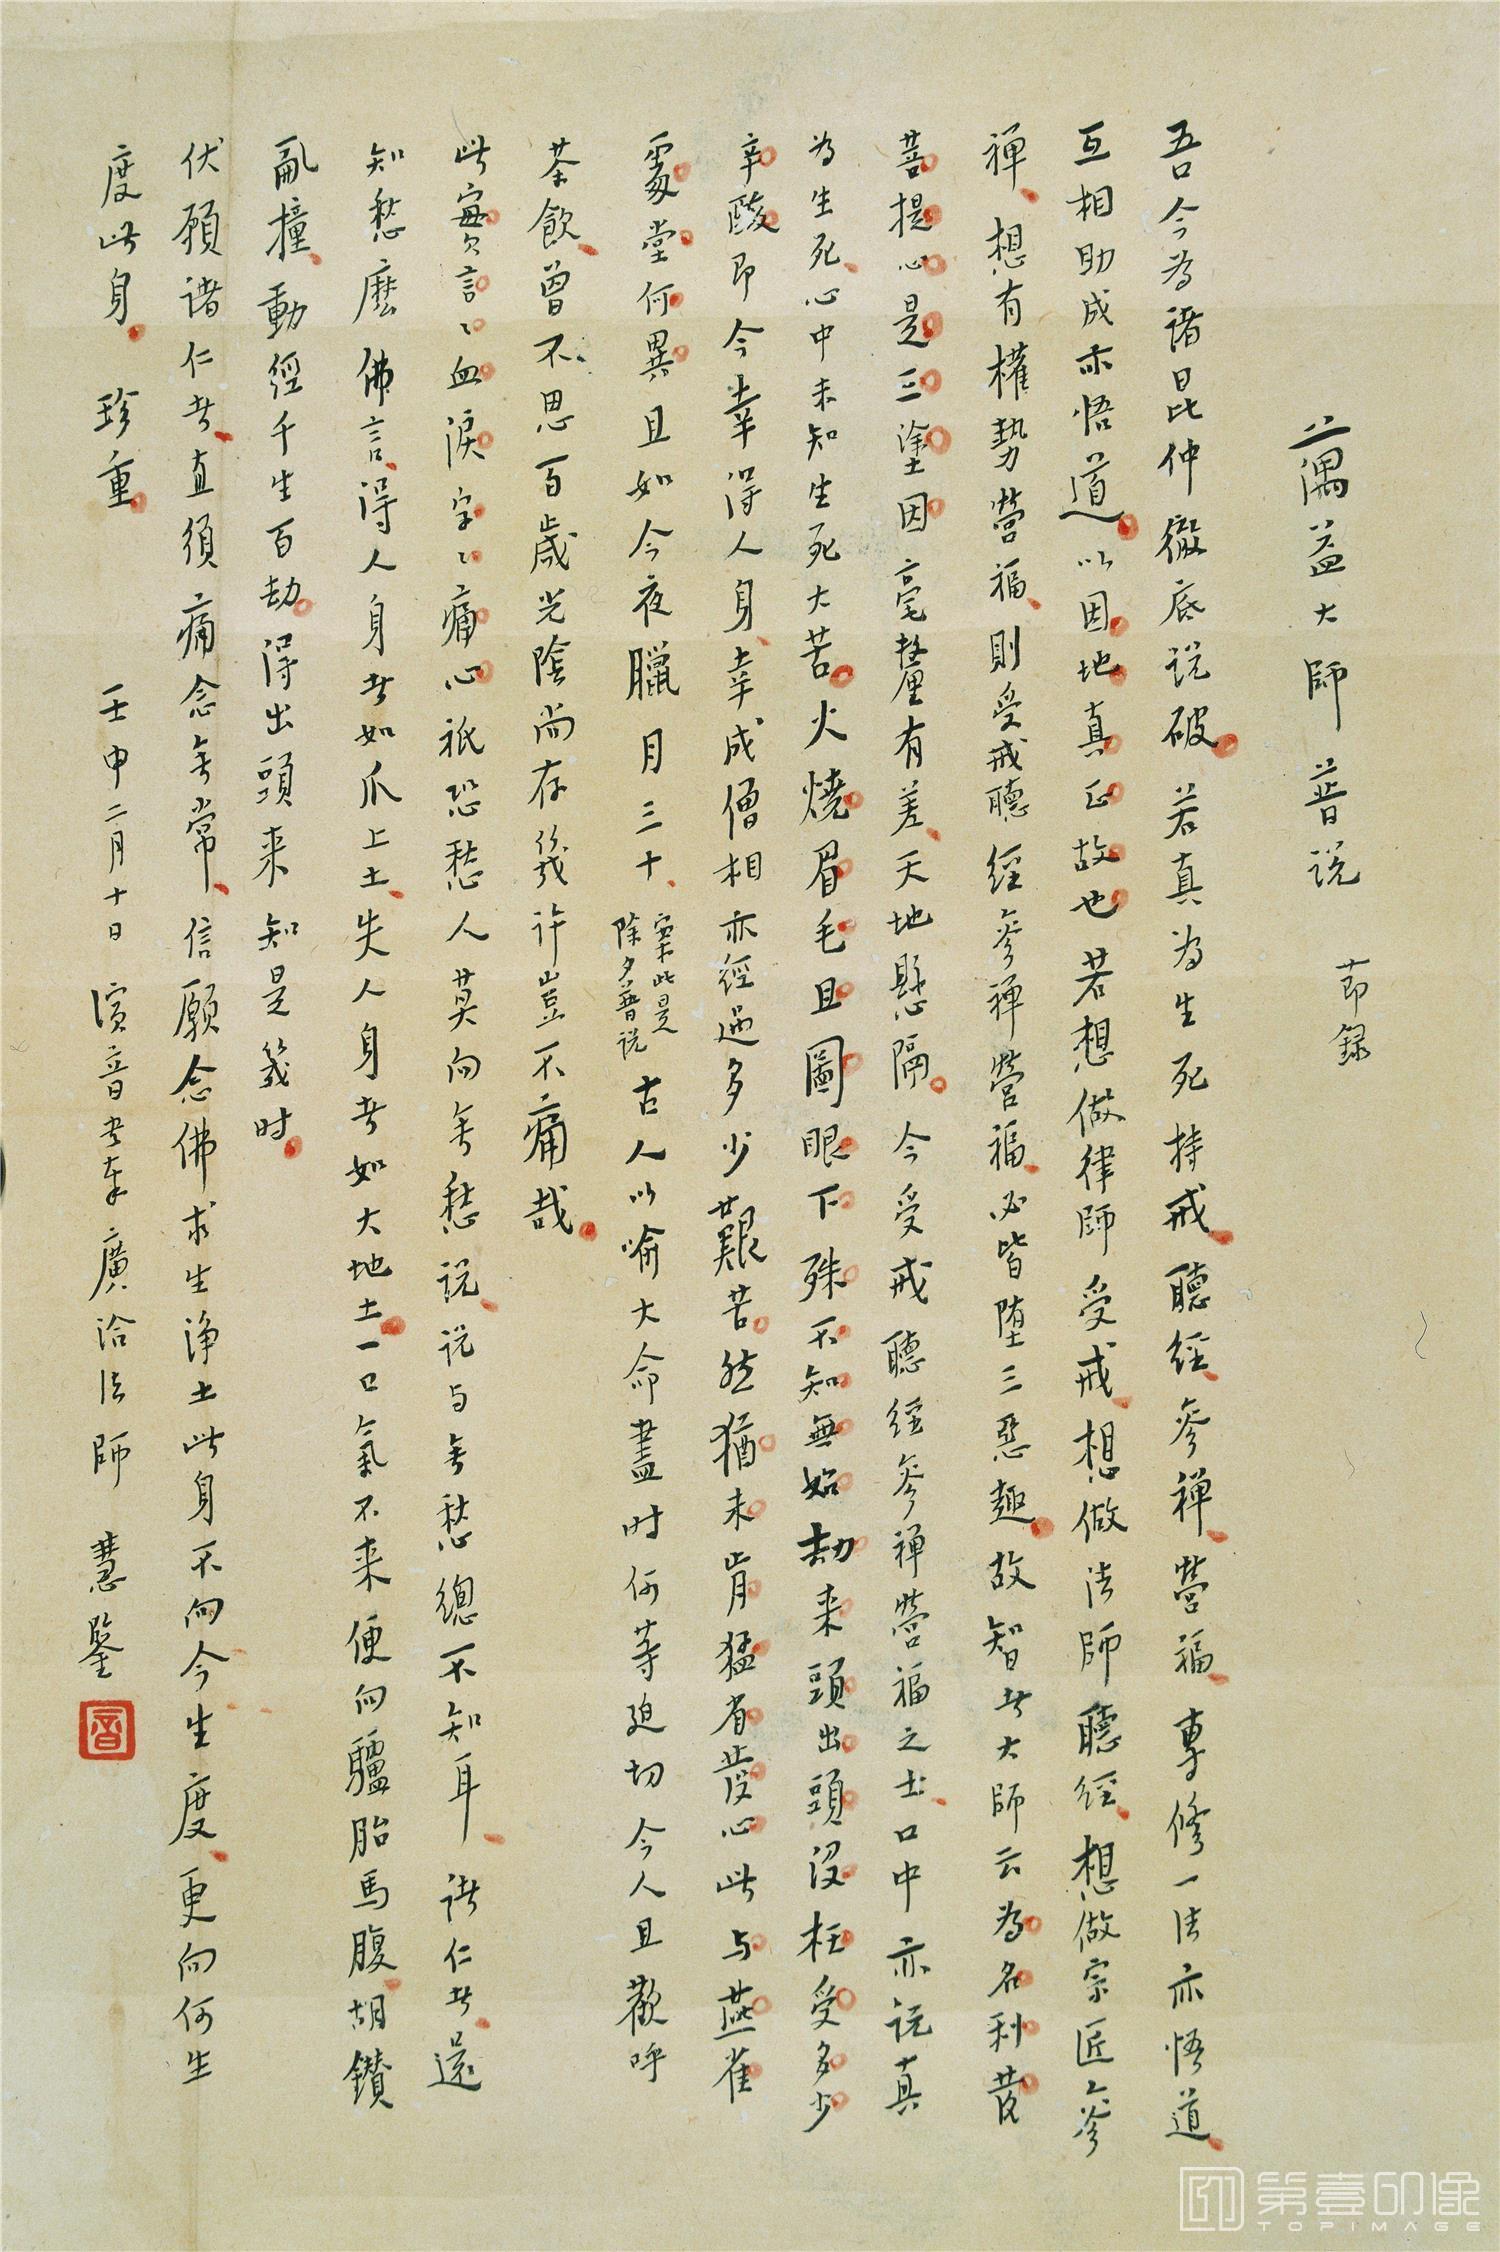 蕅益大師普說 節錄
吾今為諸昆仲徹底說破若真為生死持戒聽經參禪營福專修一法亦悟道
互相助成亦悟道以因地真正故也若想做律師受戒想做法師聽經想做宗匠參
禅想有權勢營福則受戒聽經參禅營福必皆堕三惡趣故智者大師云為名利發
菩提心是三塗因毫釐有差天地懸隔今受戒聽經參禅營福之士口中亦說真
為生死心中未知生死大苦火燒眉毛且圖眼下殊不知無始劫来頭出頭沒枉受多少
辛酸即今幸得人身幸成僧相亦經過多少艱苦然猶未肯猛省發心此与燕雀
處堂何異且如今夜臘月三十 案此是除夕普說 古人以喻大命盡时何等迫切今人且歡呼
茶飲曾不思百歲光陰尚存幾許豈不痛哉
此實言言血淚字字痛心祇恐愁人莫向無愁說說与無愁總不知耳 諸仁者還
知愁麽佛言得人身者如爪上土失人身者如大地土一口氣不来便向驢胎馬腹胡鑽
亂撞動經千生百劫得出頭来知是幾时
伏願諸仁者直須痛念無常信願念佛求生淨土此身不向今生度更向何生
度此身 珍重 壬申二月十日演音书奉廣洽法師 慧鑒
音
第壹印像
TOPIMAGE